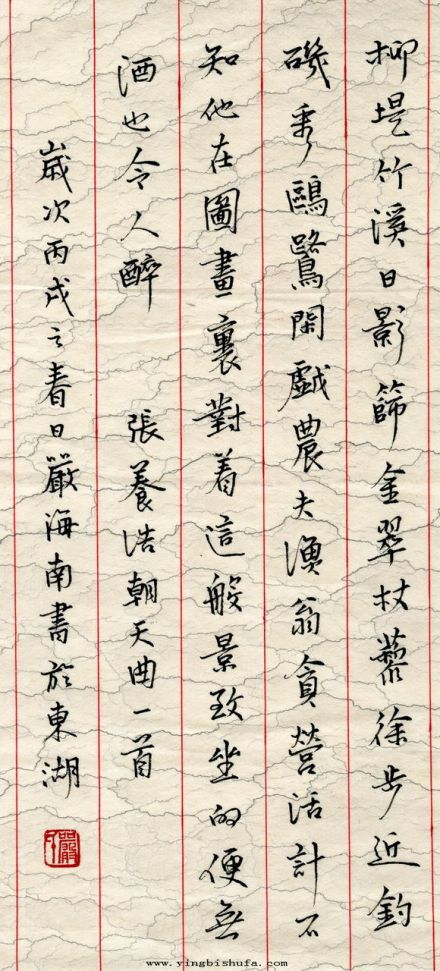 柳堤竹溪日影篩金翠杖藜徐步近釣
磯看鷗鷺閑戲農夫漁翁貪營活計不
知他在圖畫裏對着這般景致坐的便無
酒也令人醉 張養浩朝天曲一首
歲次丙戌之春日嚴海南書於東湖
www.yingbishufa.com